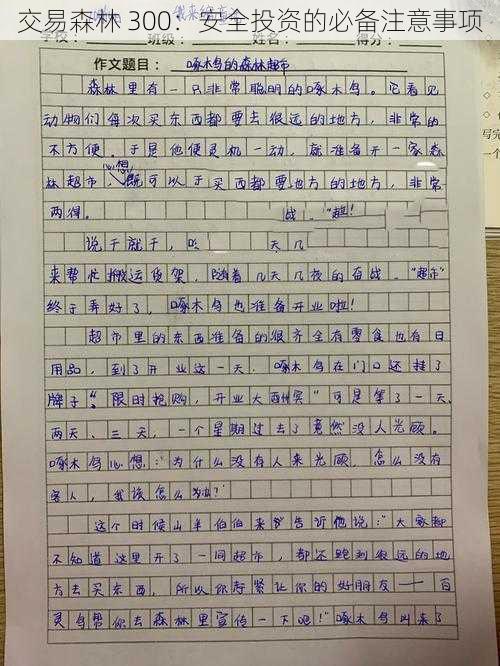 交易森林 300：安全投资的必备注意事项
学校： 班级： 姓名： 得分：
作文题目： 啄木鸟的森林超市
森林里有一只非常聪明的啄木鸟。它看见
动物们每次买东西都要去很远的地方，非常的
不方便，于是他便灵机一动，就准备开一家森
林超市，心想，既可以于买西都要地方的地方，非常
两得。 战。"超!
说干就干， 天几
来帮忙搬运货架，随着几天几夜的奋战，"超市"
终于弄好了，啄木鸟也准备开业啦！
超市里的东西准备的很齐全有零食也有日
用品，到了开业这一天，啄木鸟在门口还挂了
牌子"限时抢购，开业大酉州宾"可是等了一天、
两天、三天，一个星期过去了竟然没人光顾。
啄木鸟心想："为什么没有人来光顾，怎么没有
客人，我该怎么办？"
这个时候山羊伯伯来告诉他说："大家都
不知道这里开了一间超市，都还跑到很远的地
方去买东西，所以你赶紧让你的好朋友——百
灵鸟帮你去森林里宣传一下吧！"啄木鸟叫来了
写完
一个